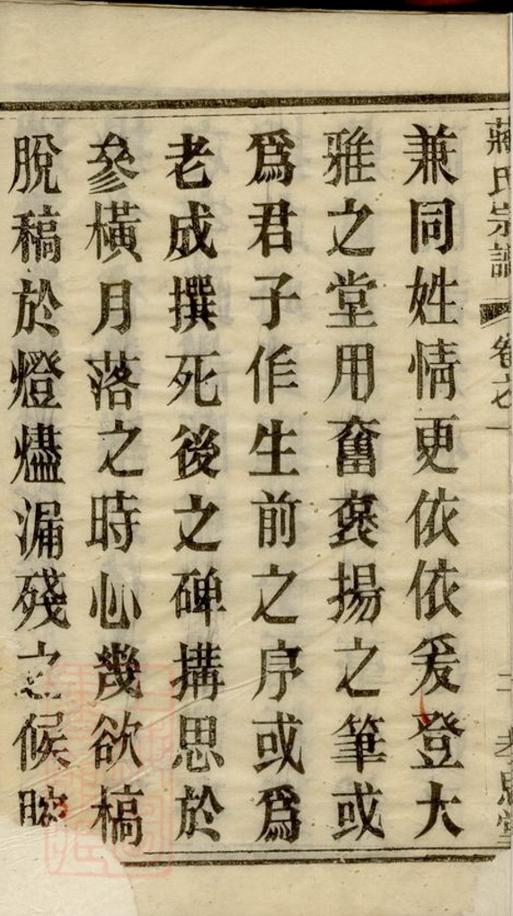 蔣氏宗譜 卷之一 二 孝思堂
兼同姓情更依依爰登大
雅之堂用奮褒揚之筆或
爲君子作生前之序或爲
老成撰死後之碑搆思於
參橫月落之時心幾欲槁
脫稿於燈燼漏殘之候